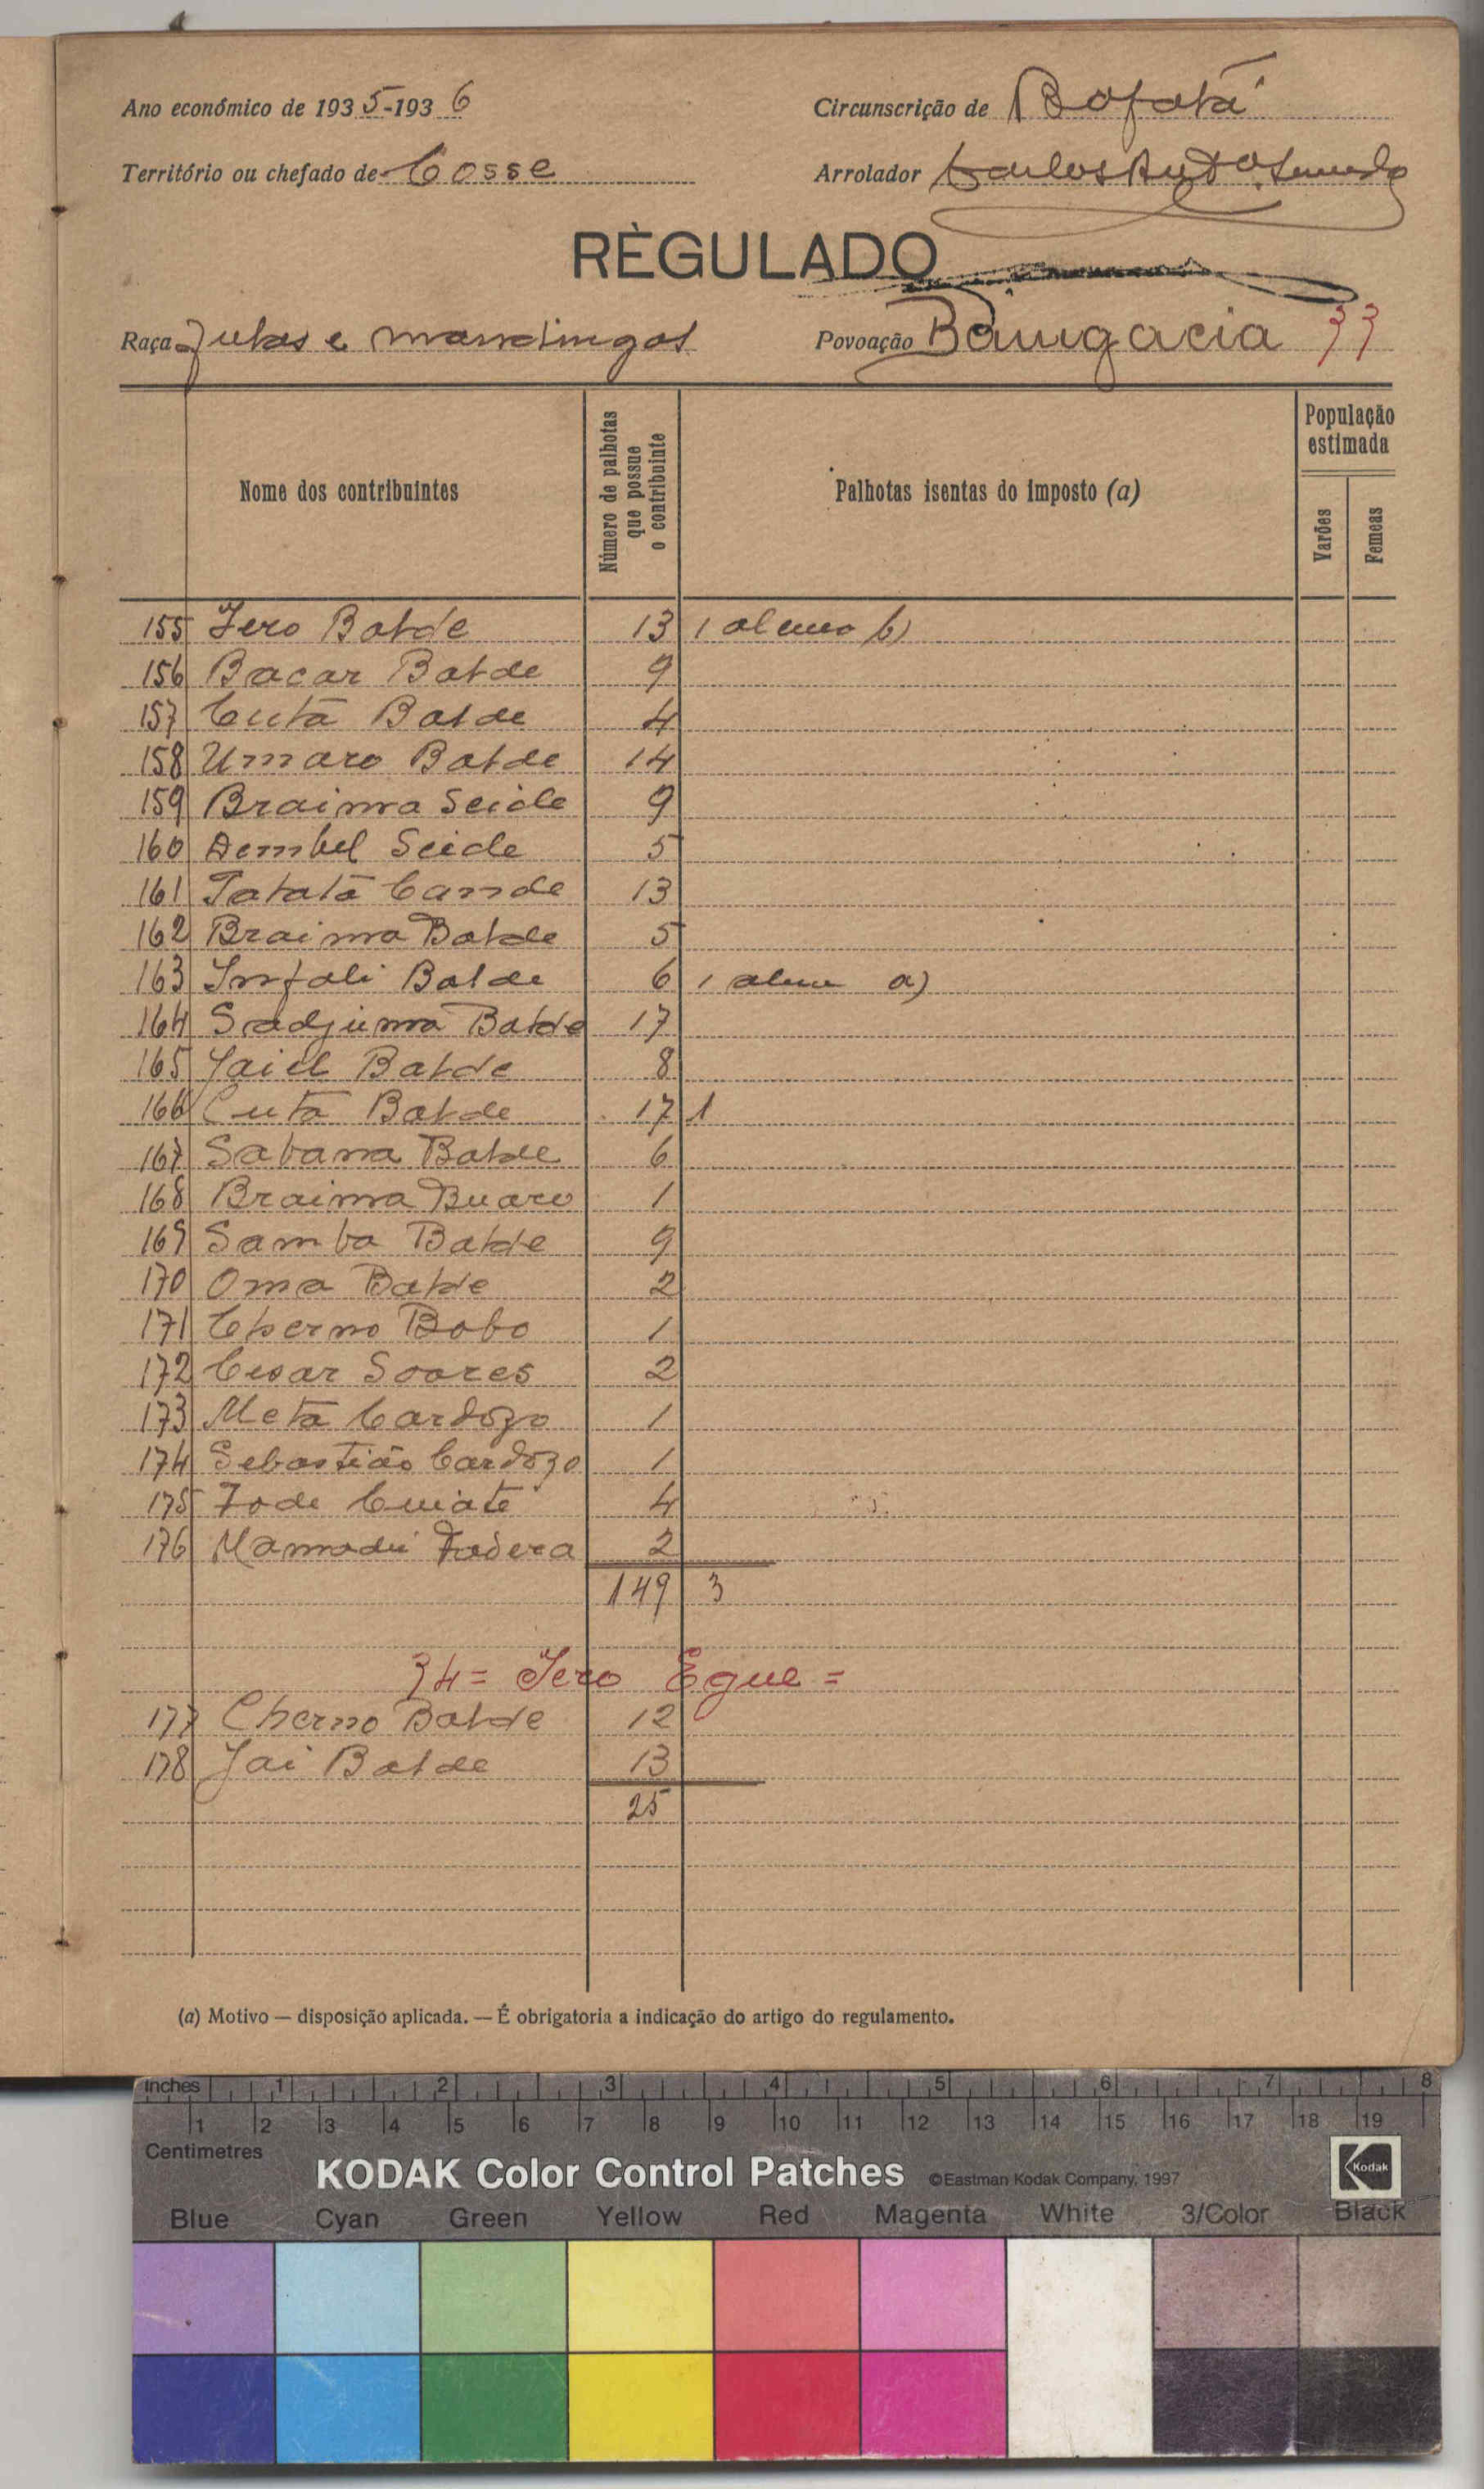 Ano económico de 1935-1936
Circunscrição de Bafatá
Território ou chefado de Cosse
Arrolador Carlos
RÈGULADO
Raça Fulas e mandingas
Povoação Bangacia 33
Nome dos contribuintes
Número de palhotas que possue o contribuinte
Palhotas isentas do imposto (a)
População estimada
Varões
Femeas
155 Jero Balde 13 1 alinea b)
156 Bacar Balde 9
157 Cutá Balde 4
158 Umaro Balde 14
159 Braima Seide 9
160 Dembel Seide 5
161 Tatatá Cande 13
162 Braima Balde 5
163 Infali Balde 6 1 alinea a)
164 Sadjuma Balde 17
165 Jaiel Balde 8
166 Cutá Balde 17 1
167 Sabana Balde 6
168 Braima Buaro 1
169 Samba Balde 9
170 Oma Balde 2
171 Cherno Bobo 1
172 Cesar Soares 2
173 Metá Cardozo 1
174 Sebastião Cardozo 1
175 Fode Cuiaté 4
176 Mamadú Fadera 2
149 3
34 = Jero Egue =
177 Cherno Balde 12
178 Jai Balde 13
25
(a) Motivo — disposição aplicada. — É obrigatoria a indicação do artigo do regulamento.
inches 1 2 3 4 5 6 7 8
1 2 3 4 5 6 7 8 9 10 11 12 13 14 15 16 17 18 19
Centimetres
KODAK Color Control Patches ©Eastman Kodak Company, 1997 Kodak
Blue Cyan Green Yellow Red Magenta White 3/Color Black